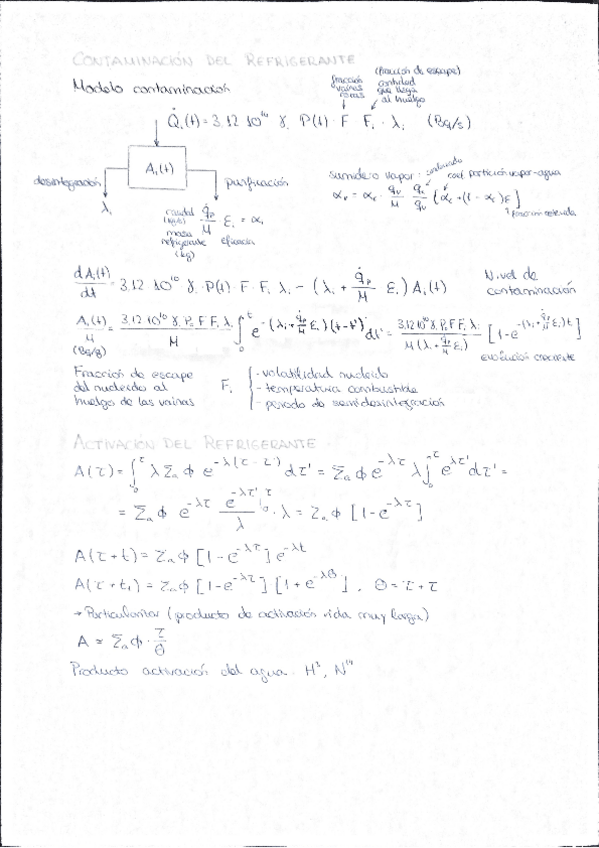 CONTAMINACIÓN DEL REFRIGERANTE
(fracción de escape)
Modelo contaminación
fracción vainas rotas
cantidad que llega al huelgo
Q̇ᵢ(t) = 3.12 10¹⁰ γᵢ P(t) · F · Fᵢ · λᵢ (Bq/s)
Aᵢ(t)
desintegración
λᵢ
purificación
caudal (kg/s) q̇ₚ/M εᵢ = αᵢ
masa refrigerante (kg)
eficacia
sumidero vapor:
coef. partición vapor-agua
dAᵢ(t)/dt = 3.12 10¹⁰ γᵢ P(t) · F · Fᵢ λᵢ - (λᵢ + q̇ₚ/M εᵢ) Aᵢ(t)
Nivel de contaminación
Aᵢ(t)/M = 3.12 10¹⁰ γᵢ P₀ F Fᵢ λᵢ / M ∫₀ᵗ e^-(λᵢ + q̇ₚ/M εᵢ)(t-t') dt' = 3.12 10¹⁰ γᵢ P₀ F Fᵢ λᵢ / M(λᵢ + q̇ₚ/M εᵢ) [1 - e^-(λᵢ + q̇ₚ/M εᵢ)t]
(Bq/g)
evolución creciente
Fracción de escape del nucleido al huelgo de las vainas
Fᵢ
- volatilidad nucleido
- temperatura combustible
- periodo de semidesintegración
ACTIVACIÓN DEL REFRIGERANTE
A(τ) = ∫₀^τ λ Σₐ ϕ e^-λ(τ - τ') dτ' = Σₐ ϕ e^-λτ λ ∫₀^τ e^λτ' dτ' =
= Σₐ ϕ e^-λτ e^-λτ'/λ |₀^τ · λ = Σₐ ϕ [1 - e^-λτ]
A(τ + t) = Σₐ ϕ [1 - e^-λτ] e^-λt
A(τ + t₁) = Σₐ ϕ [1 - e^-λτ] [1 + e^-λθ] . θ = τ + τ
→ Particularizar (producto de activación vida muy larga)
A ≈ Σₐ ϕ · τ/θ
Producto activación del agua. H³, N¹⁴